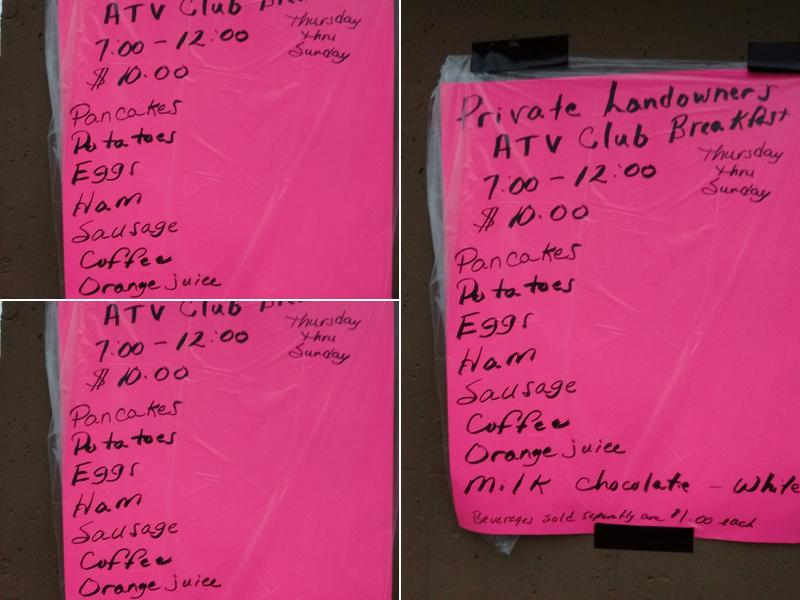 ATV Club Bre
Thursday
thru
Sunday
7:00 - 12:00
$10.00
Pancakes
Potatoes
Eggs
Ham
Sausage
Coffee
Orange juice
ATV Club
Thursday
thru
Sunday
7:00 - 12:00
$10.00
Pancakes
Potatoes
Eggs
Ham
Sausage
Coffee
Orange juice
Private Landowners
ATV Club Breakfast
Thursday
thru
Sunday
7:00 - 12:00
$10.00
Pancakes
Potatoes
Eggs
Ham
Sausage
Coffee
Orange juice
Milk Chocolate - White
Beverages sold separtly are $1.00 each